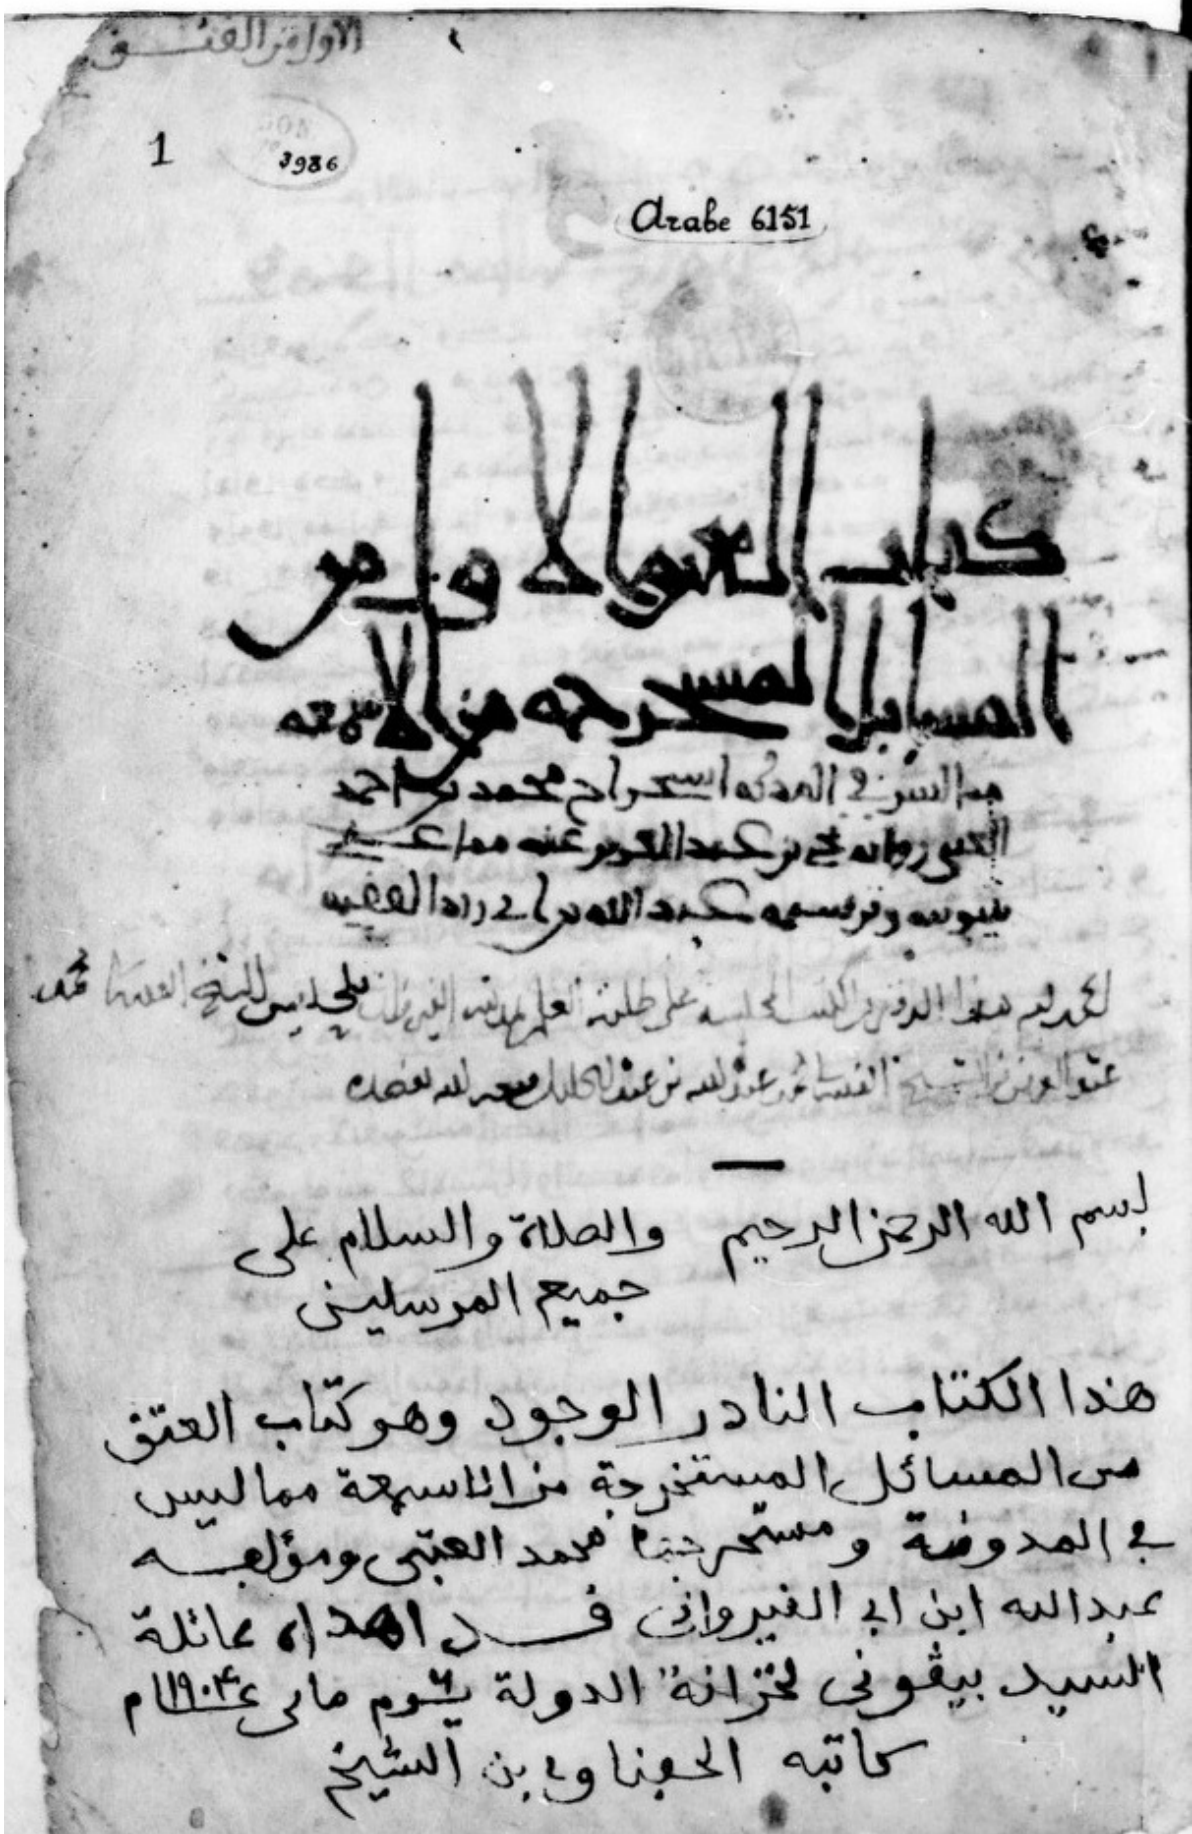 الاول من العتـــق
1
3986
Arabe 6151
كتاب العتق الاول من
المسايل المستخرجه من الاسمعه
مما ليس في المدونه استخراج محمد بن احمد
العتبي روايه يحي بن عبد العزيز عنه مما عني
بتبويبه وترسيمه عبد الله بن ابي زيد الفقيه
الحمد لله هذا الدفتر من الكتب المحبسه على طلبة العلم بمدينة القيروان
عبد الله بن عبد الجليل
بسم الله الرحمن الرحيم والصلاة والسلام على
جميع المرسلين
هذا الكتاب النادر الوجود وهو كتاب العتق
من المسائل المستخرجة من الاسمعة مما ليس
في المدونة ومستخرجها محمد العتبى ومؤلفه
عبد الله ابن ابي القيروانى قد اهداه عائلة
السيد بيڤونى لخزانة الدولة يوم ٦ ماى ع ١٩٠٤ـام
كاتبه الحفناوي بن الشيخ